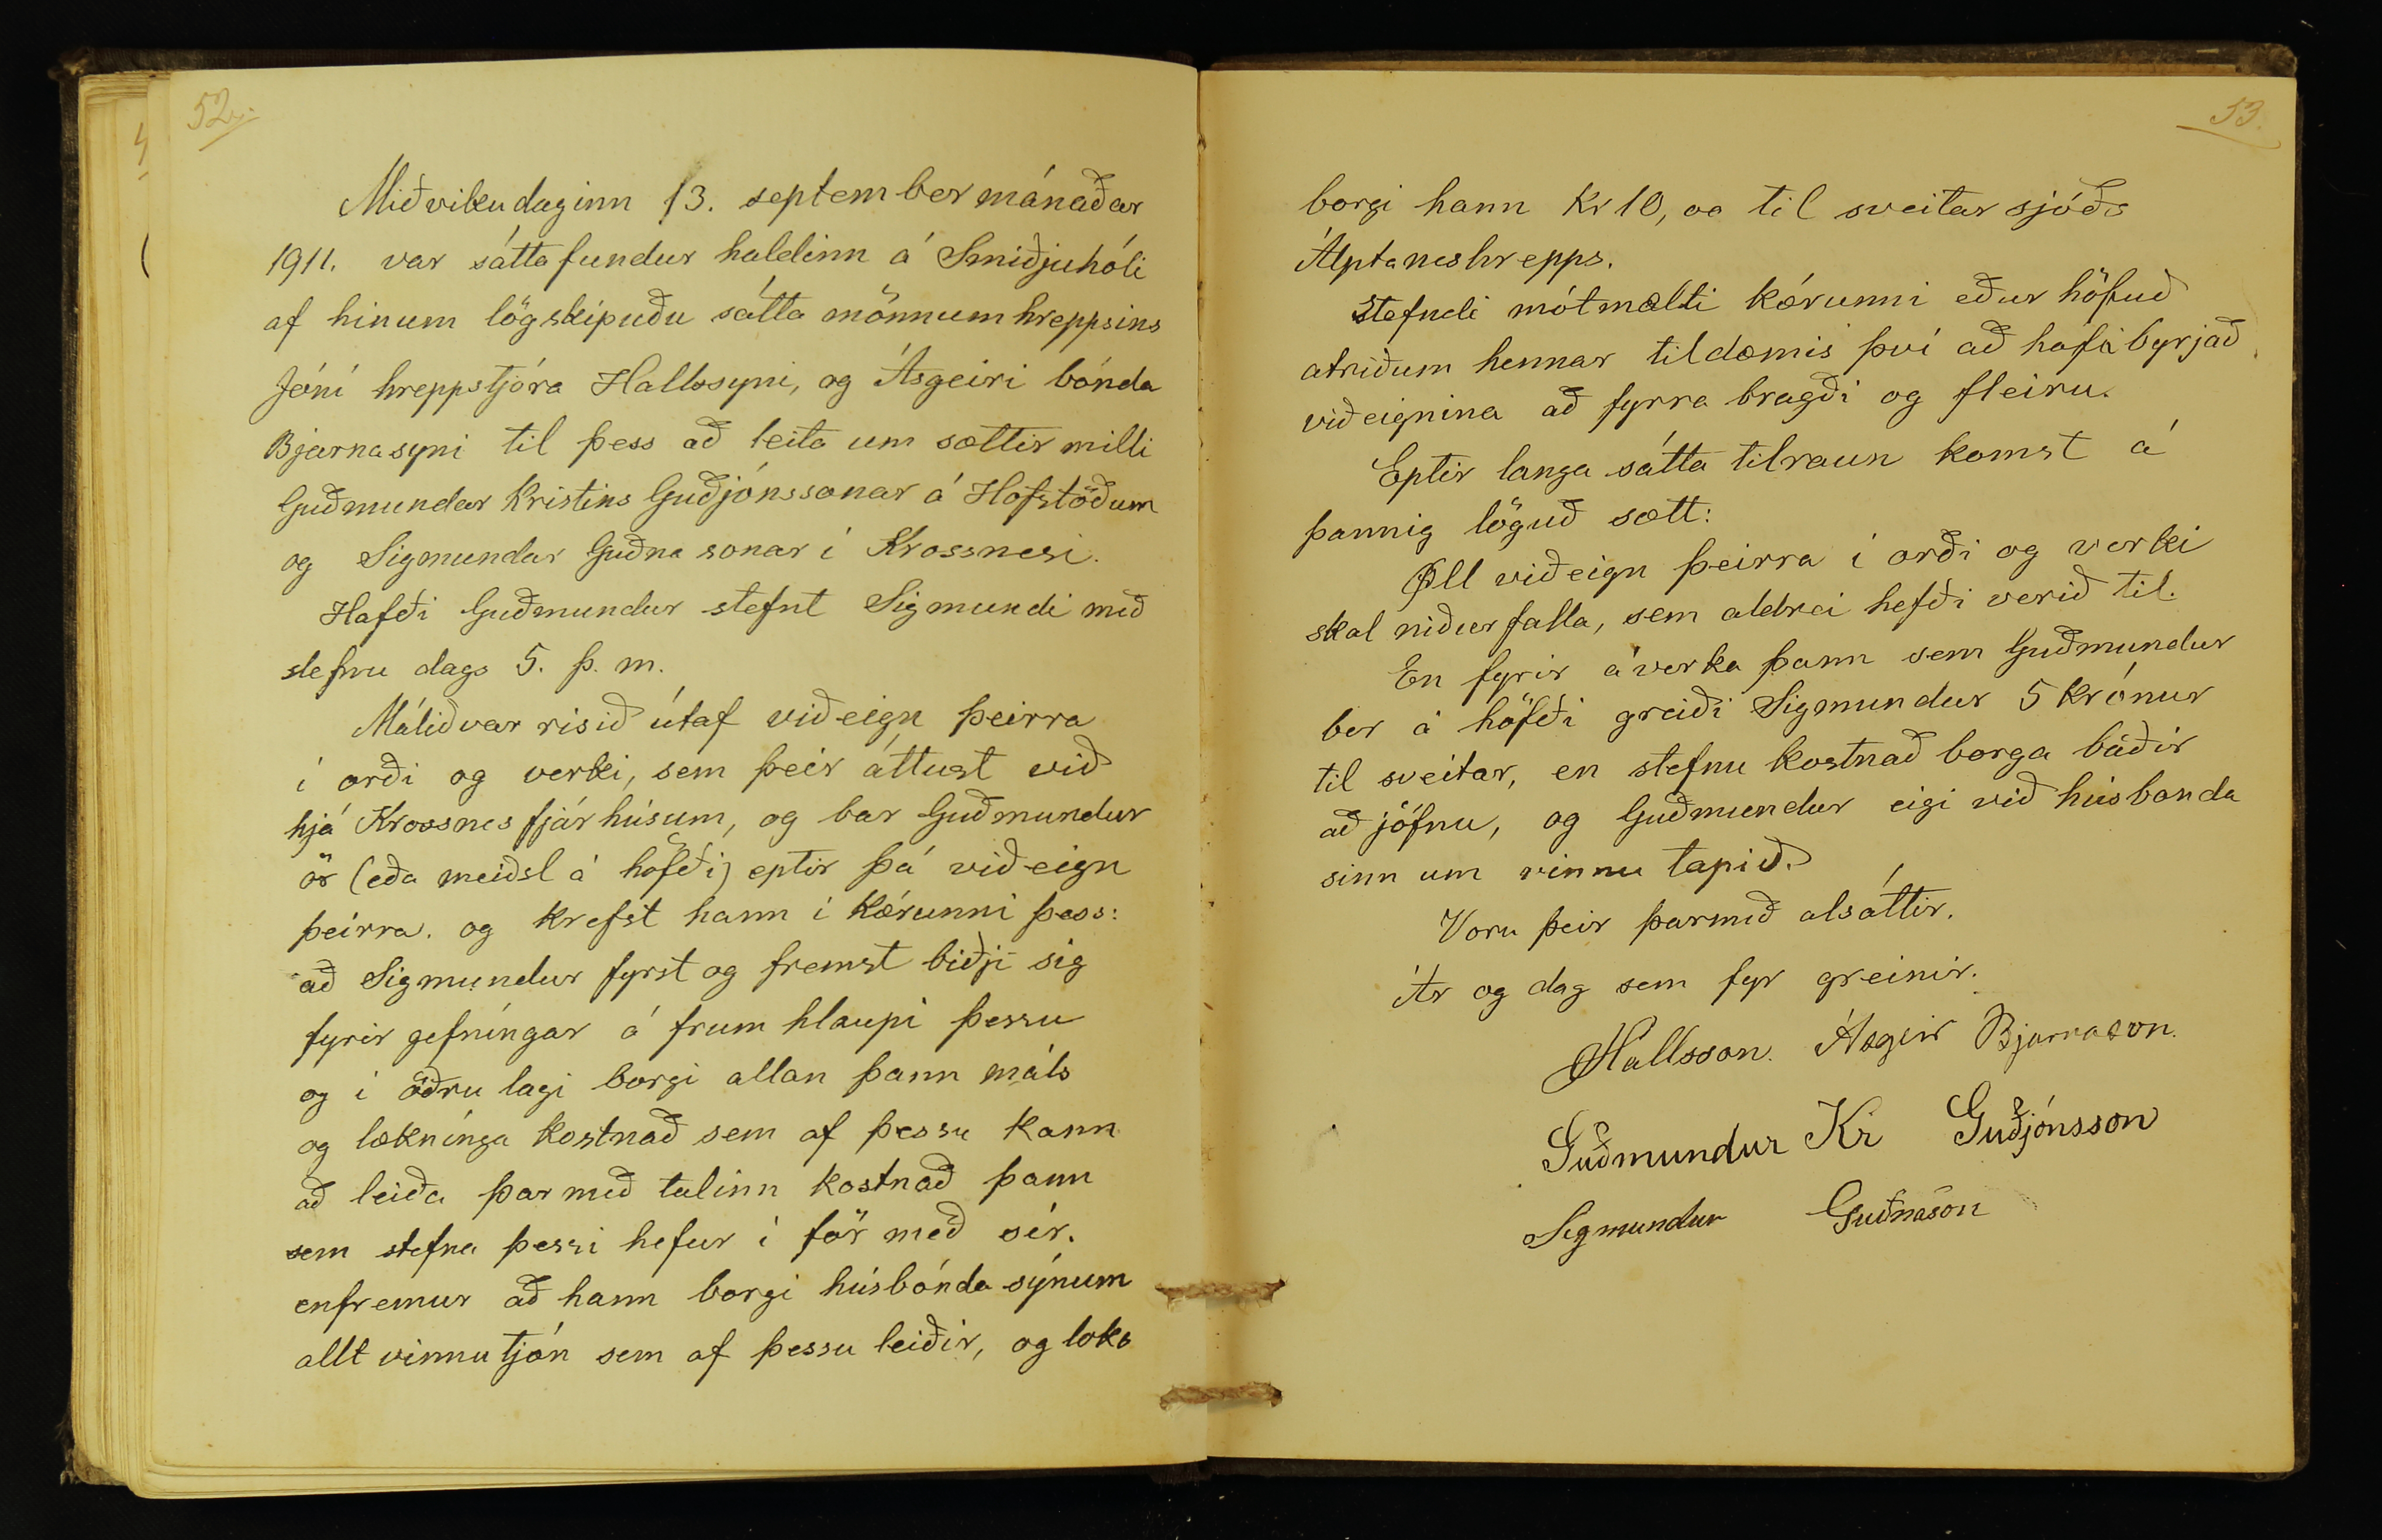 52.
Miðvikudaginn 13. september mánaðar
1911. var sátta fundur haldinn á Smiðjuhóli
af hinum lögskipuðu sátta mönnum hreppsins
Jóni hreppstjóra Hallssyni, og Ásgeiri bónda
Bjarnasyni til þess að leita um sættir milli
Guðmundar Kristins Guðjónssonar á Hofstöðum
og Sigmundar Guðna sonar í Krossnesi.
Hafði Guðmundur stefnt Sigmundi með
stefnu dags 5. þ. m.
Málið var risið útaf viðeign þeirra
í orði og verki, sem þeir áttust við
hjá Krossnes fjárhúsum, og bar Guðmundur
ör (eða meiðsl á höfði) eptir þá viðeign
þeirra. og krefst hann í kærunni þess:
að Sigmundur fyrst og fremst biðji sig
fyrir gefningar á frum hlaupi þessu
og í öðru lagi borgi allan þann máls
og lækninga kostnað sem af þessu kann
að leiða þar með talinn kostnað þann
sem stefna þessi hefur í för með sér.
enfremur að hann borgi húsbónda sýnum
allt vinnutjón sem af þessu leiðir, og loks
53.
borgi hann Kr 10, oo til sveitar sjóðs
Álptaneshrepps.
Stefndi mótmælti kærunni eður höfuð
atriðum hennar til dæmis því að hafa byrjað
viðeignina að fyrra bragði og fleiru.
Eptir langa sátta tilraun komst á
þannig löguð sætt:
Öll viðeign þeirra í orði og verki
skal niður falla, sem aldrei hefði verið til.
En fyrir áverka þann sem Guðmundur
ber á höfði greiði Sigmundur 5 krónur
til sveitar, en stefnu kostnað borga báðir
að jöfnu, og Guðmundur eigi við húsbonda
sinn um vinnu tapið.
Voru þeir þarmeð alsáttir.
Ár og dag sem fyr greinir.
JHallsson. Ásgeir Bjarnason.
Guðmundur Kr Guðjónsson
Sigmundur Guðnason